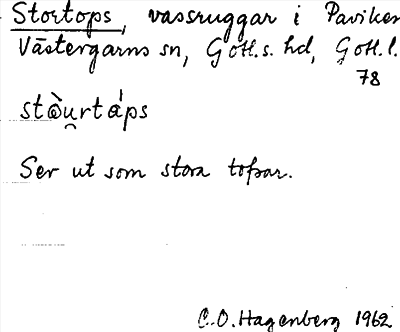 Stortops, vassruggar i Paviken
Västergarns sn, Gotl. s. hd, Gotl. l.
78
stòu̯rtáps
Ser ut som stora tofsar.
C. O. Hagenberg 1962